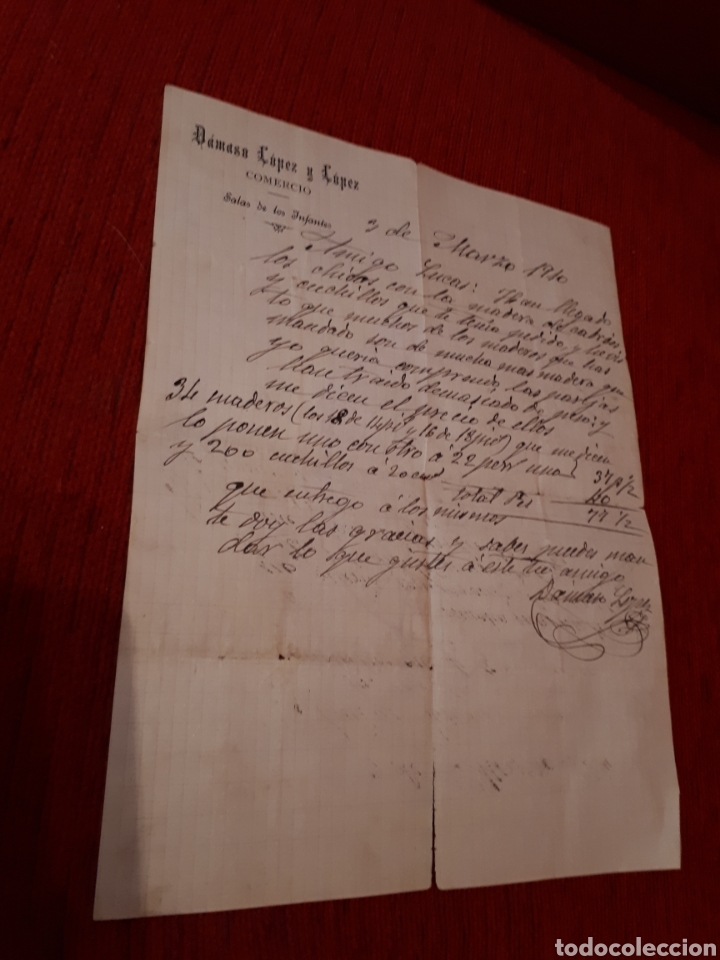 Dámaso López y López
COMERCIO
Salas de los Infantes
3 de Marzo 1910
Amigo Lucas: Han llegado
los chicos con la madera de cabrios
y cuchillos que te tenia pedido, y
to que muchos de los maderos que has
mandado son de mucha mas madera que
yo queria comprendo las parejas
Han traido demasiado de peso; y
me dicen el precio de ellos
34 maderos (los 18 de 14 y 16 de 18) que me dicen
lo ponen uno con otro á 22 uno 37 1/2
y 200 cuchillos á 20 40
Total Pts 77 1/2
que entrego á los mismos
te doy las gracias y sabes puedes man
dar lo que gustes á este tu amigo
Damaso Lopez
todocoleccion